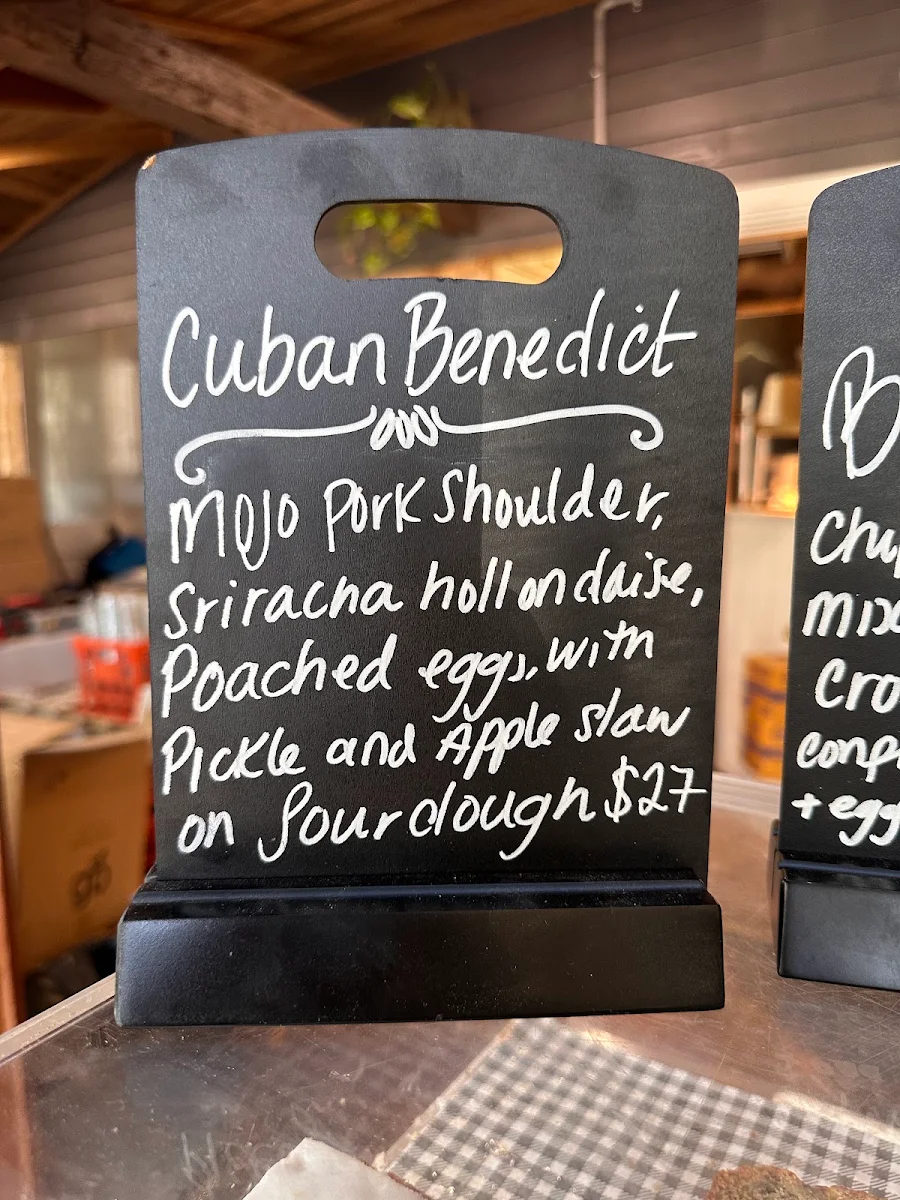 Cuban Benedict
Mojo Pork Shoulder,
Sriracha hollondaise,
Poached eggs, with
Pickle and Apple slaw
on Sourdough $27
B
Chu
mix
Cro
+ egg